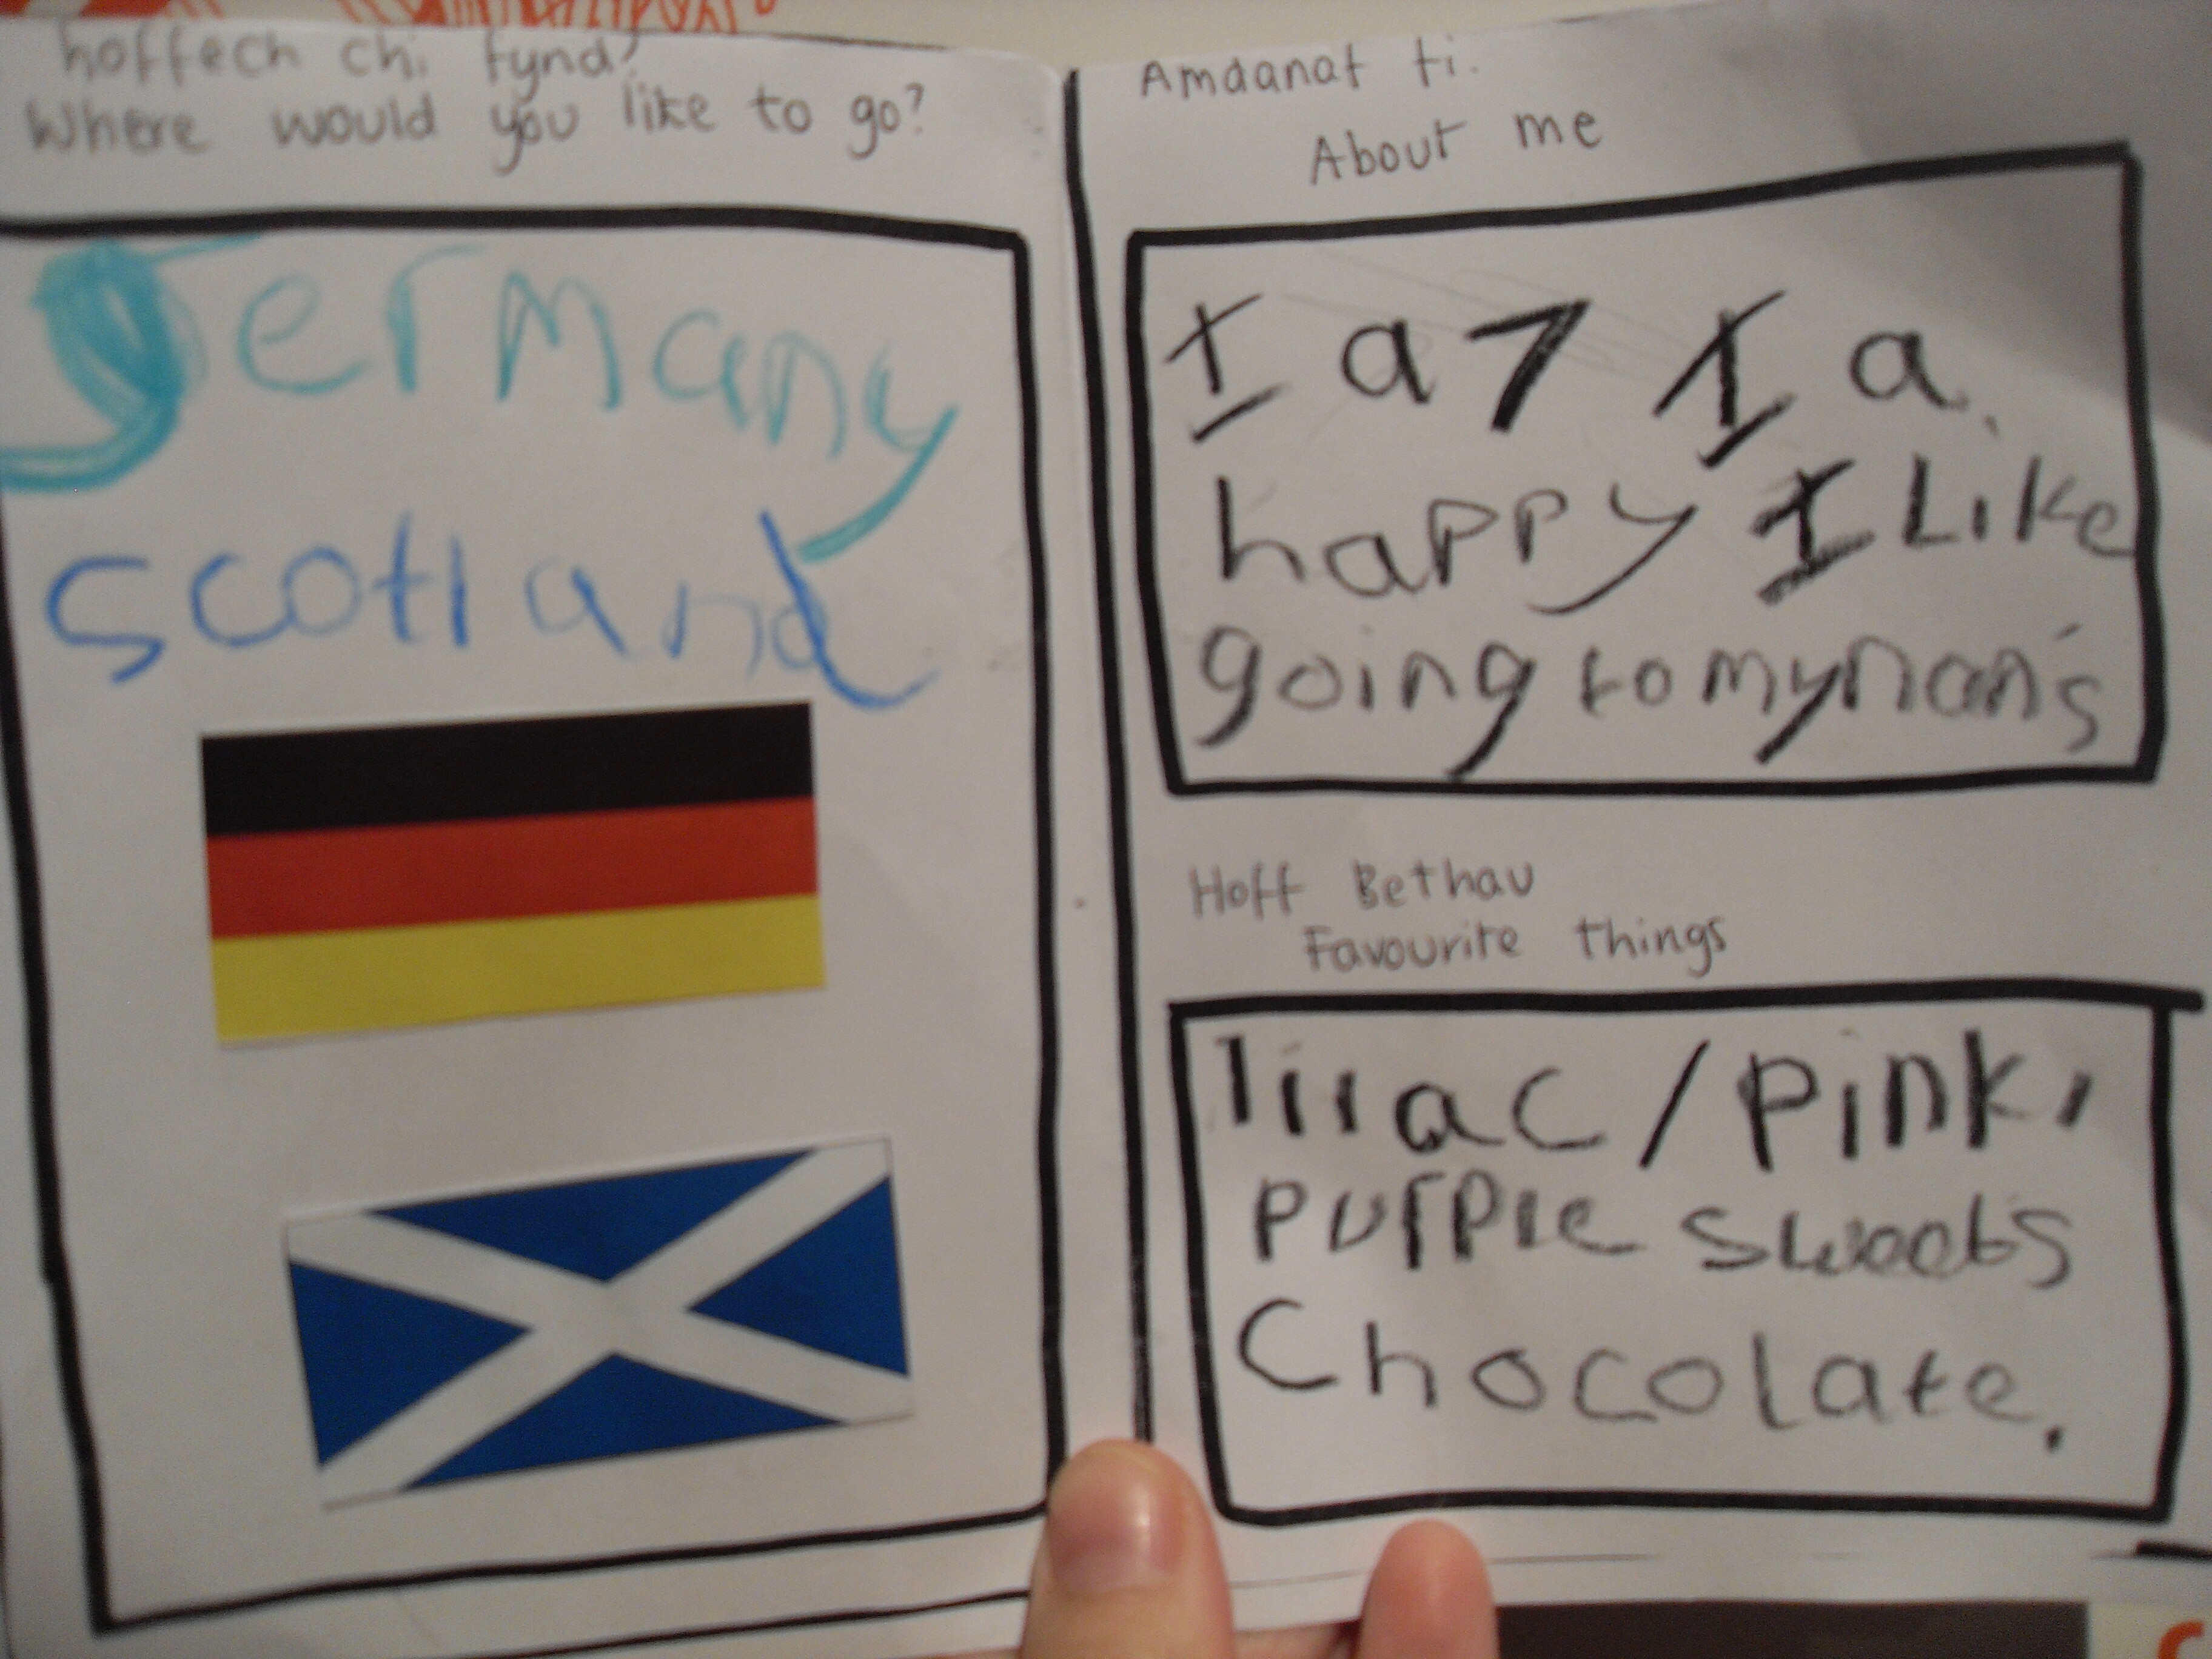 hoffech chi fynd?
Where would you like to go?
Germany
scotland
Amdanat ti.
About me
I a 7 I a.
happy I Like
going to my nan's
Hoff Bethau
Favourite things
lilac / pink,
purple sweets
Chocolate.